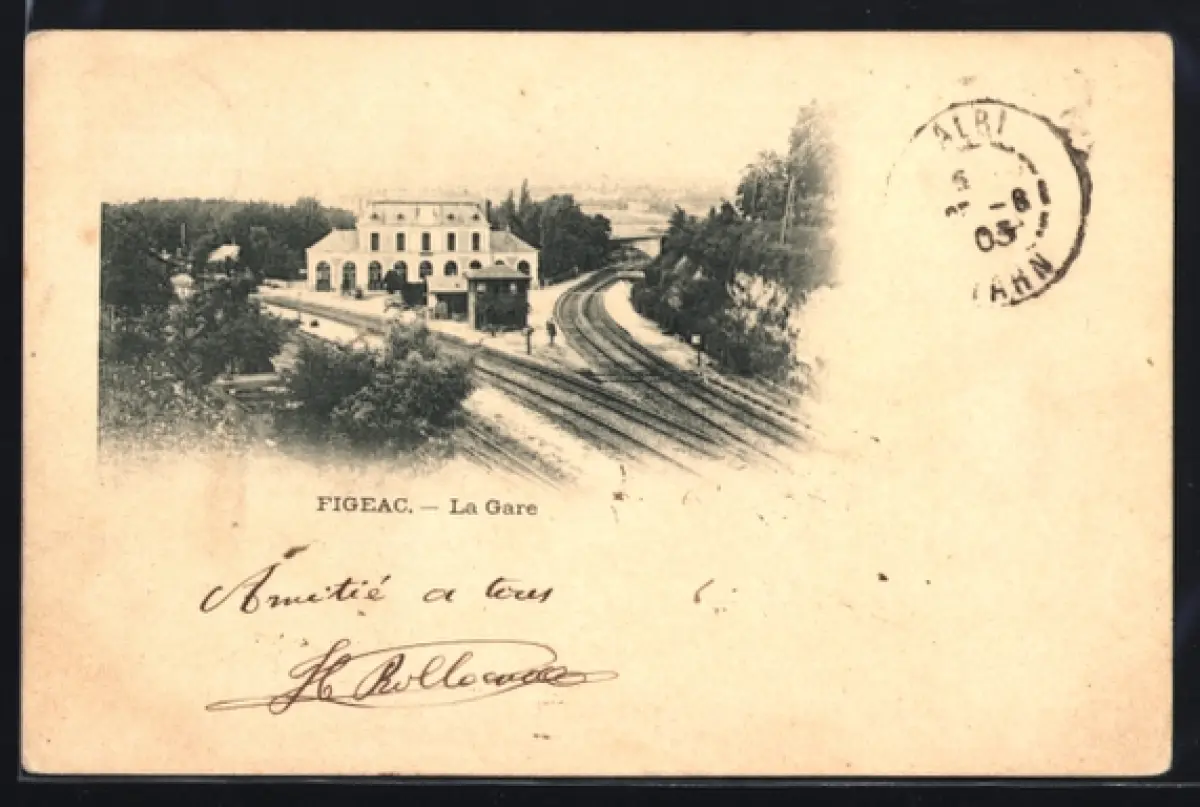 ALBI
6
-8
03
TARN
FIGEAC. — La Gare
Amitié a tous
H